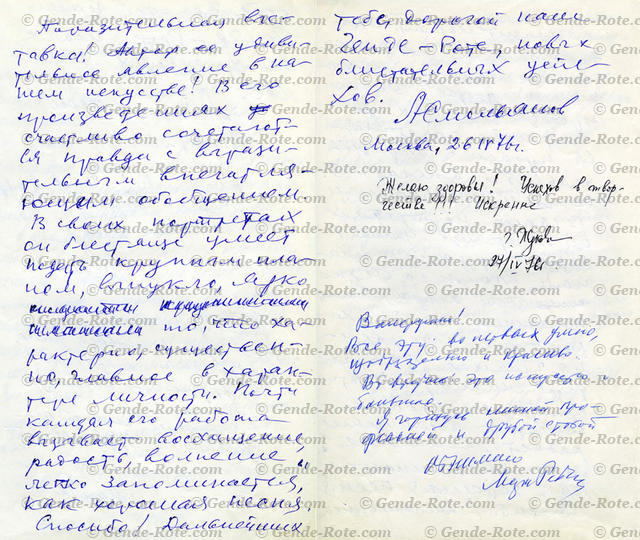 Поразительная выс-
тавка! Автор её удиви-
тельное явление в на-
шем искусстве! В его
произведениях
счастливо сочетают-
ся правда с вырази-
тельным впечатля-
ющим обобщением.
В своих портретах
он блестяще умеет
подать крупным пла-
ном, выпукло, ярко
то, что ха-
рактерно, существен-
но, главное в харак-
тере личности. Почти
каждая его работа
вызывает восхищение,
радость, волнение и
легко запоминается,
как хорошая песня.
Спасибо! Дальнейших
тебе, дорогой наш
Генде-Роте, новых
блистательных успе-
хов.
Москва, 26 IV 76 г.
Желаю здоровья! Успехов в твор-
честве!!! Искренне
27/IV 76
Валерий!
Все эту: во первых умно,
и красиво.
В третьих это искусство и
большое.
Я горжусь нашей про-
фессией и дружбой с тобой
© Gende-Rote.com